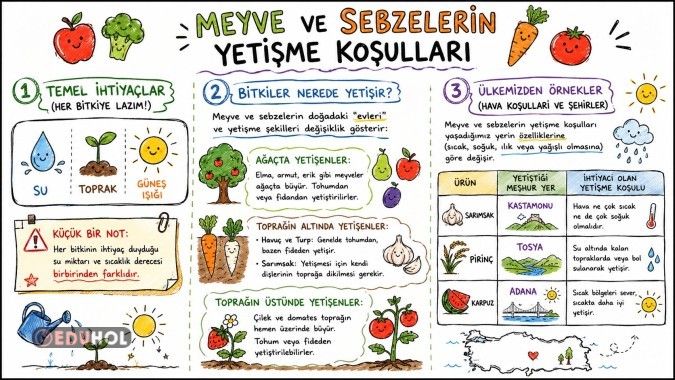 MEYVE VE SEBZELERİN
YETİŞME KOŞULLARI
1 TEMEL İHTİYAÇLAR
(HER BİTKİYE LAZIM!)
SU
TOPRAK
GÜNEŞ
IŞIĞI
KÜÇÜK BİR NOT:
Her bitkinin ihtiyaç duyduğu
su miktarı ve sıcaklık derecesi
birbirinden farklıdır.
EDUHOL
2 BİTKİLER NEREDE YETİŞİR?
Meyve ve sebzelerin doğadaki "evleri"
ve yetişme şekilleri değişiklik gösterir:
AĞAÇTA YETİŞENLER:
Elma, armut, erik gibi meyveler
ağaçta büyür. Tohumdan
veya fidandan yetiştirilirler.
TOPRAĞIN ALTINDA YETİŞENLER:
• Havuç ve Turp: Genelde tohumdan,
bazen fideden yetişir.
• Sarımsak: Yetişmesi için kendi
dişlerinin toprağa dikilmesi gerekir.
TOPRAĞIN ÜSTÜNDE YETİŞENLER:
Çilek ve domates toprağın
hemen üzerinde büyür.
Tohum veya fideden
yetiştirilebilirler.
3 ÜLKEMİZDEN ÖRNEKLER
(HAVA KOŞULLARI VE ŞEHİRLER)
Meyve ve sebzelerin yetişme koşulları
yaşadığımız yerin özelliklerine
(sıcak, soğuk, ılık veya yağışlı olmasına)
göre değişir.
ÜRÜN
YETİŞTİĞİ
MEŞHUR YER
İHTİYACI OLAN
YETİŞME KOŞULU
SARIMSAK
KASTAMONU
Hava ne çok sıcak
ne de çok soğuk
olmalıdır.
PİRİNÇ
TOSYA
Su altında kalan
topraklarda veya bol
sulanarak yetişir.
KARPUZ
ADANA
Sıcak bölgeleri sever,
sıcakta daha iyi yetişir.